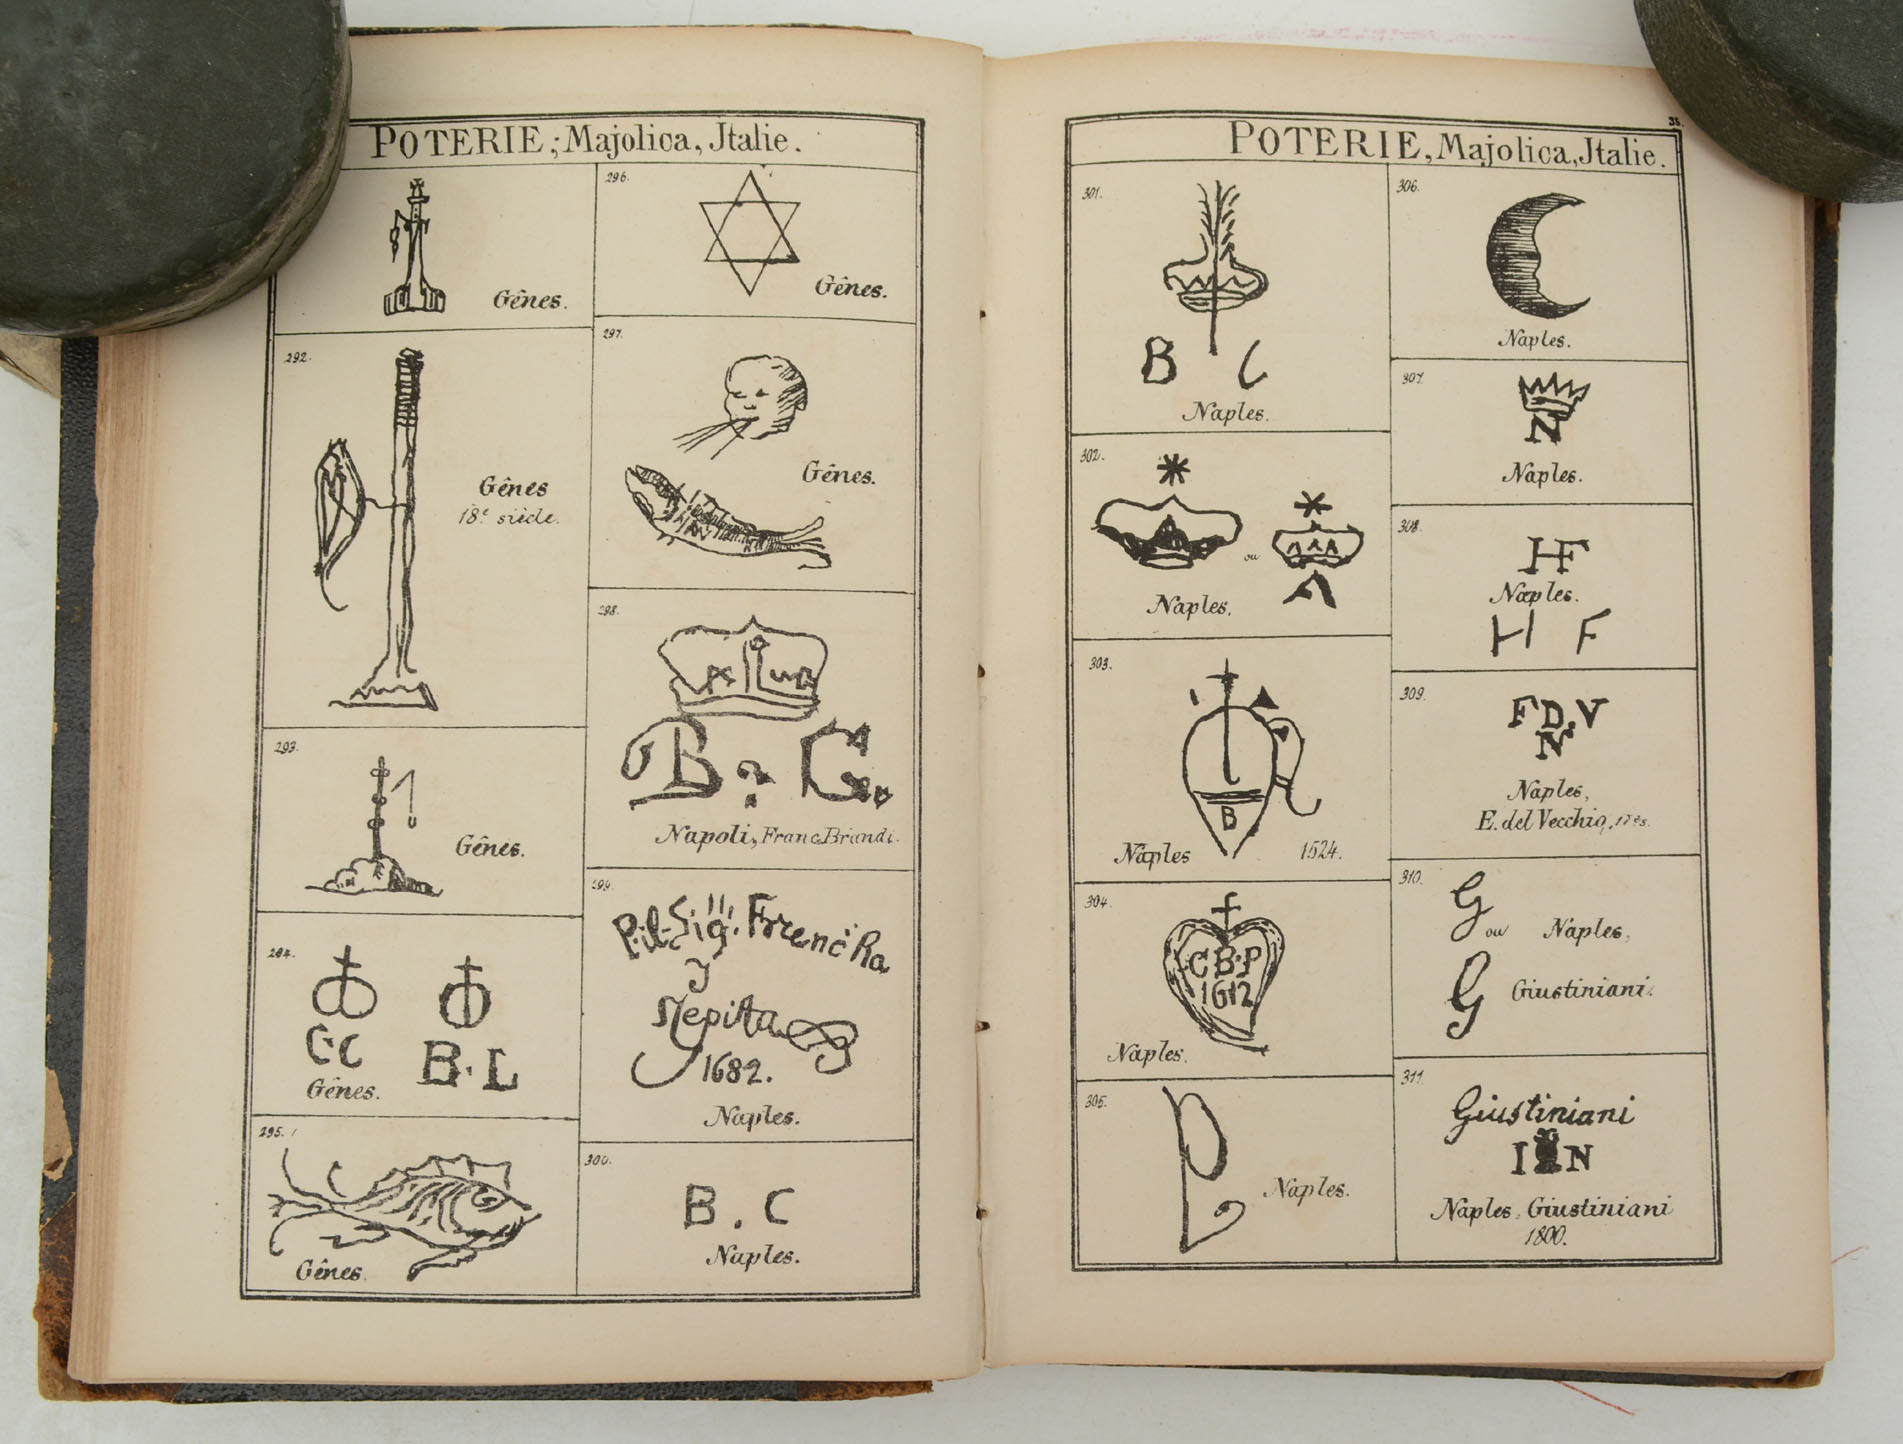 POTERIE; Majolica, Jtalie.
Gênes.
292.
Gênes
18e siècle.
293.
Gênes.
294.
C·C
B·L
Gênes.
295.
Gênes.
296.
Gênes.
297.
Gênes.
298.
B. G.
Napoli, Franc. Brandi.
299.
1682.
Naples.
300.
B. C
Naples.
35.
POTERIE, Majolica, Jtalie.
301.
B C
Naples.
302.
ou
Naples.
303.
B
Naples 1524.
304.
C B·P
1612
Naples.
305.
P
Naples.
306.
Naples.
307.
N
Naples.
308.
HF
Naples.
H F
309.
F D. V
N
Naples,
E. del Vecchio,
310.
G
ou Naples,
G Giustiniani.
311.
Giustiniani
I N
Naples, Giustiniani
1800.